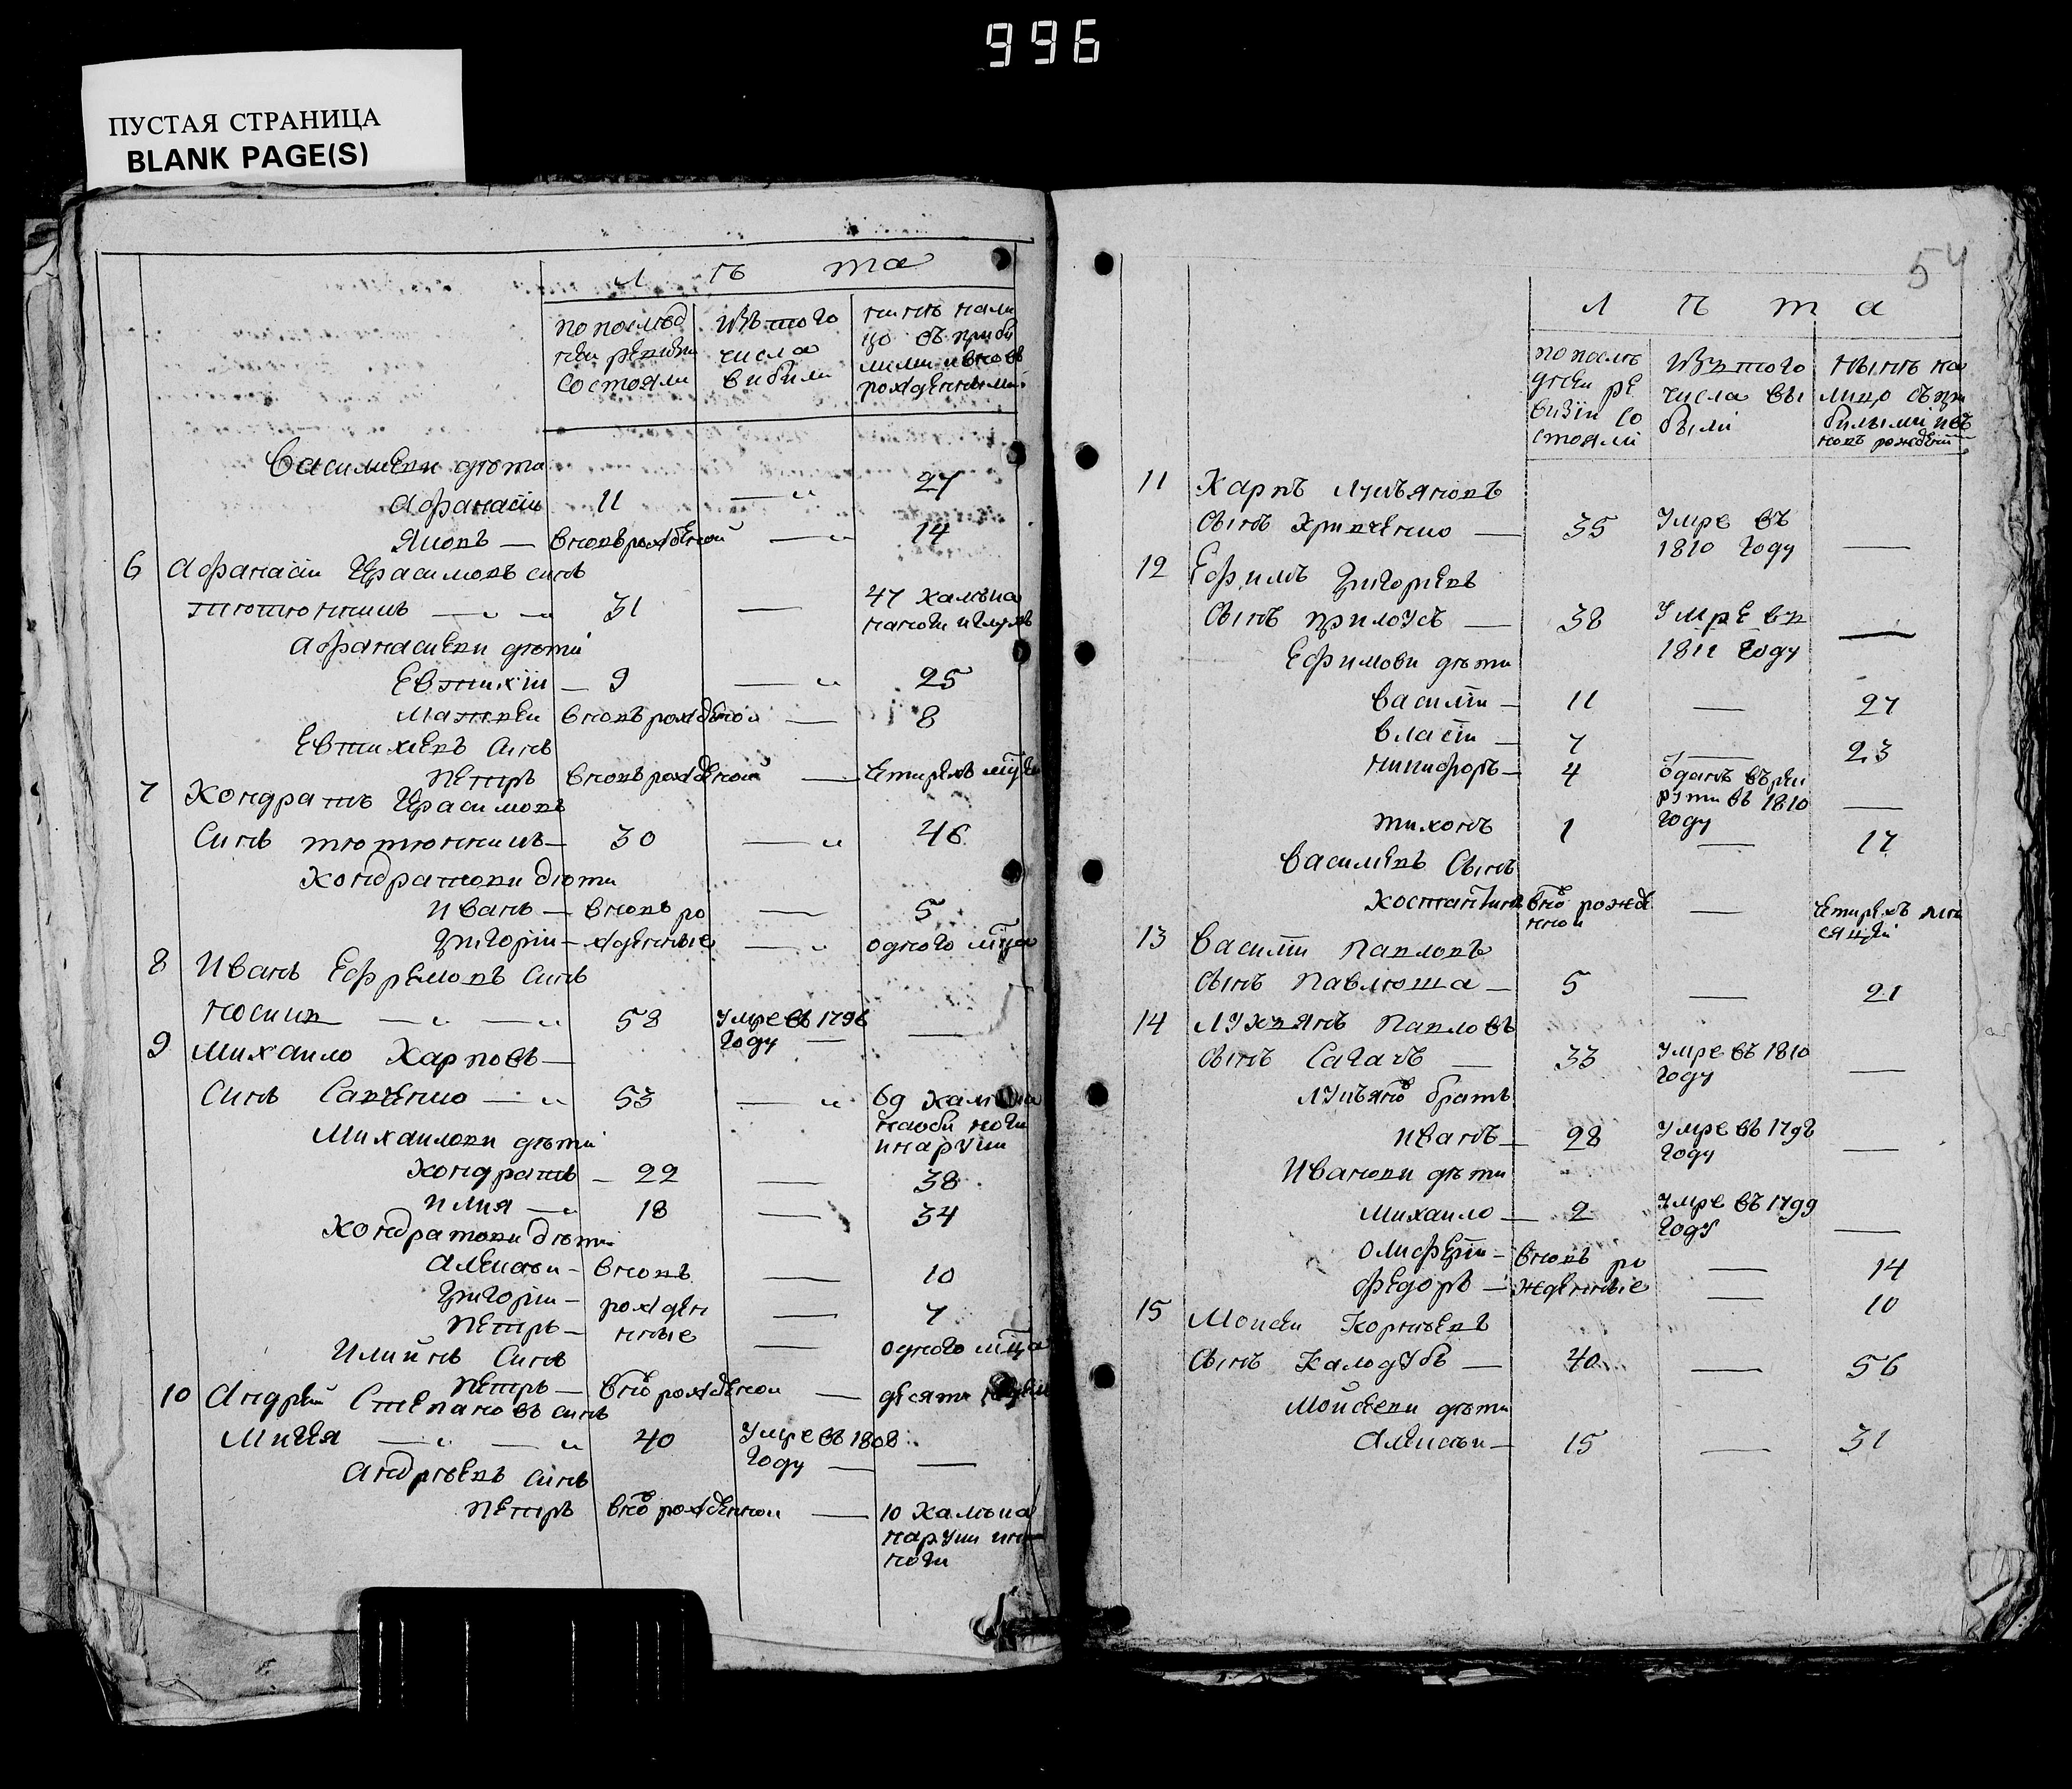 996
ПУСТАЯ СТРАНИЦА
BLANK PAGE(S)
Л ѣ та
по послѣд ней ревизи состояли
Изъ того числа вибили
нинѣ нали цо съ приби лими и вновь рожденыими
Василиеви дѣти
Афанасiй 11 — 27
Яковъ — вновь рожденой — 14
6 Афанасiй Герасимовъ синъ
тютюнникъ — 31 — 47 калѣка на ноги и глухъ
Афанасиеви дѣти
Евтихiй — 9 — 25
Матвей вновь рожденой — 8
Евтихиевъ Синъ
Петръ вновь рожденой — Четирехъ мцей
7 Кондратъ Герасимовъ
Синъ тютюнникъ — 30 — 46
Кондратови дѣти
Иванъ — вновь ро — 5
Григорiй — жденные — одного мца
8 Иванъ Ефремовъ Синъ
носикъ — 58 Умре въ 1796 Году —
9 Михаило Карповъ —
Синъ Савченко — 53 — 69 калѣка на оби ноги и на руки
Михаилови дѣти
Кондратъ — 22 — 38
Илия — 18 — 34
Кондратови дѣти
Алексѣй — вновь — 10
Григорiй — рожден — 7
Петръ — нные — одного мца
Илиинъ Синъ
Петръ — вно рожденой — десяти недѣль
10 Андрей Степановъ синъ
Мигея — 40 Умре въ 1808 Году —
Андрѣевъ Синъ
Петръ вно рожденной — 10 калѣка на руки и на ноги
54
Л ѣ т а
по послѣ дней ре визiи со стояли
Изъ того числа вы были
нынѣ на лицо съ при былыми и въ новь рожденi
11 Карпъ Лукъяновъ
Сынъ Кривченко — 35 Умре въ 1810 Году —
12 Ефимъ Григориевъ
Сынъ прилоусъ — 38 Умре въ 1811 Году —
Ефимови дѣти
Василiй — 11 — 27
Власiй — 7 — 23
Никифоръ — 4 Оданъ въ рек рути въ 1810 Году —
Тихонъ 1 — 17
Василиевъ Сынъ
Костантинъ вно рожде нной — Четирехъ мѣ сяцей
13 Василiй Павловъ
Сынъ Павлюша — 5 — 21
14 Лукъянъ Павловъ
Сынъ Сагачъ — 33 Умре въ 1810 Году —
Лукъяно братъ
Иванъ — 28 Умре въ 1798 Году —
Иванови дѣти
Михаило — 2 Умре въ 1799 Году —
Олиферiй — вновь ро — 14
Федоръ — жденные — 10
15 Моисей Корнѣевъ
Сынъ Калодубъ — 40 — 56
Моисееви дѣти
Алексѣй — 15 — 31